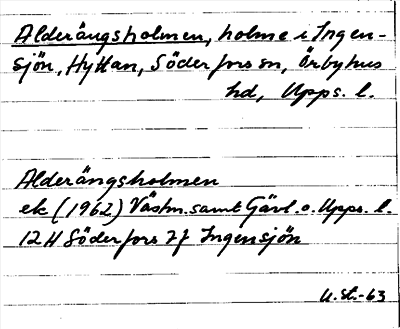 Alderängsholmen, holme i Ingen-
sjön, Hyttan, Söderfors sn, Örbyhus
hd, Upps. l.
Alderängsholmen
ek (1962) Västm. samt Gävl. o. Upps. l.
12H Söderfors 7f Ingensjön
U.St.-63